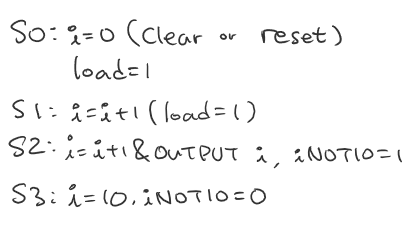 S0: i=0 (clear or reset)
load=1
S1: i=i+1 (load=1)
S2: i=i+1 & OUTPUT i, iNOT10=1
S3: i=10, iNOT10=0